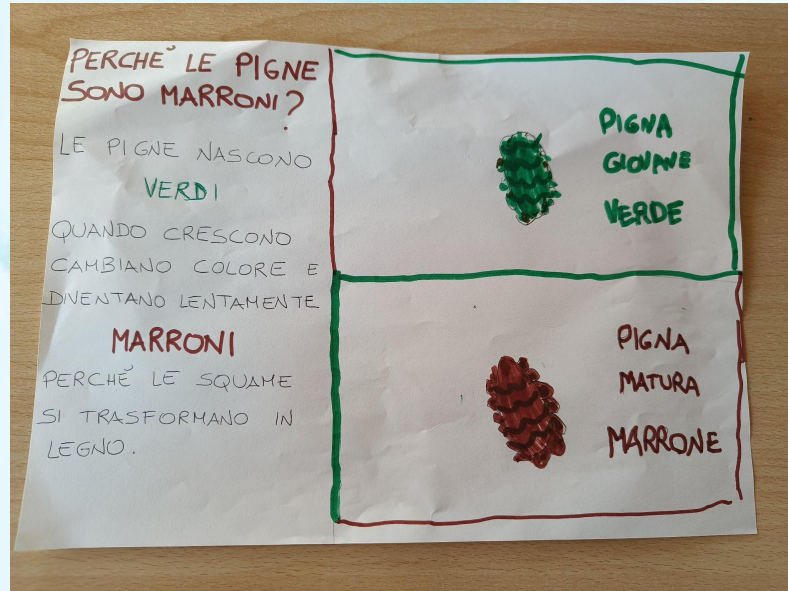 PERCHÈ LE PIGNE
SONO MARRONI?
LE PIGNE NASCONO
VERDI
QUANDO CRESCONO
CAMBIANO COLORE E
DIVENTANO LENTAMENTE
MARRONI
PERCHÈ LE SQUAME
SI TRASFORMANO IN
LEGNO.
PIGNA
GIOVANE
VERDE
PIGNA
MATURA
MARRONE